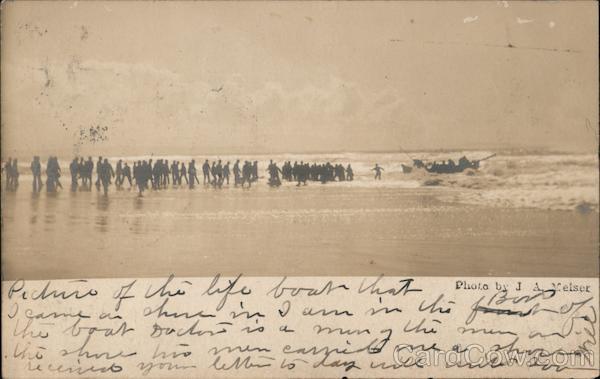 Photo by J. A. Meiser
Picture of the life boat that
I came a shore in I am in the Bow of
the boat Doctor is a mung the men on
the shore two men carried me a shore
received your letter to day will
CardCow.com